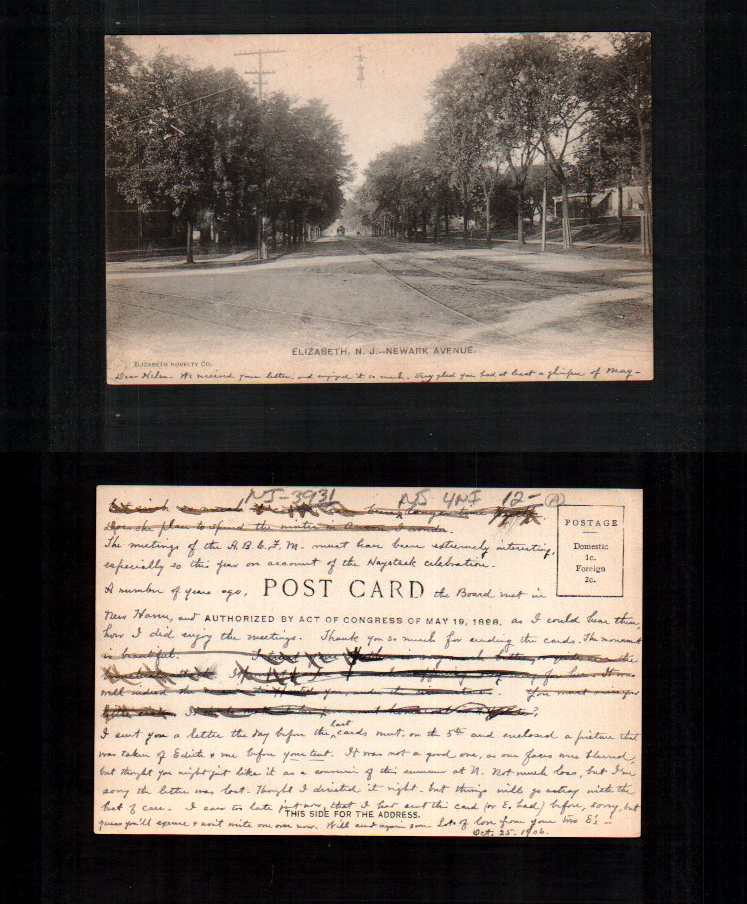 ELIZABETH, N. J.—NEWARK AVENUE.
ELIZABETH NOVELTY CO.
Dear Helen - We received your letter and enjoyed it so much. Very glad you had at least a glimpse of May -
NJ-3931 NJ 4NJ 12- A
Does she plan to spend the winter in I wonder.
The meetings of the A.B.C.F.M. must have been extremely interesting,
especially so this year on account of the Haystack celebration.
A number of years ago, POST CARD the Board met in
New Haven, and AUTHORIZED BY ACT OF CONGRESS OF MAY 19, 1898. as I could hear then,
how I did enjoy the meetings. Thank you so much for sending the cards. The monument
is beautiful.
POSTAGE
Domestic
1c.
Foreign
2c.
I sent you a letter the day before the last cards went, on the 5th and enclosed a picture that
was taken of Edith & me before your tent. It was not a good one, as our faces were blurred,
but thought you might just like it as a souvenir of this summer at N. Not much loss, but I'm
sorry the letter was lost. Thought I directed it right, but things will go astray with the
best of care. I saw too late just now, that I had sent this card (or E. had) before, sorry, but
THIS SIDE FOR THE ADDRESS.
guess you'll excuse & won't write one over now. Will send again soon lots of love from your two E's -
Oct. 25 - 1906.